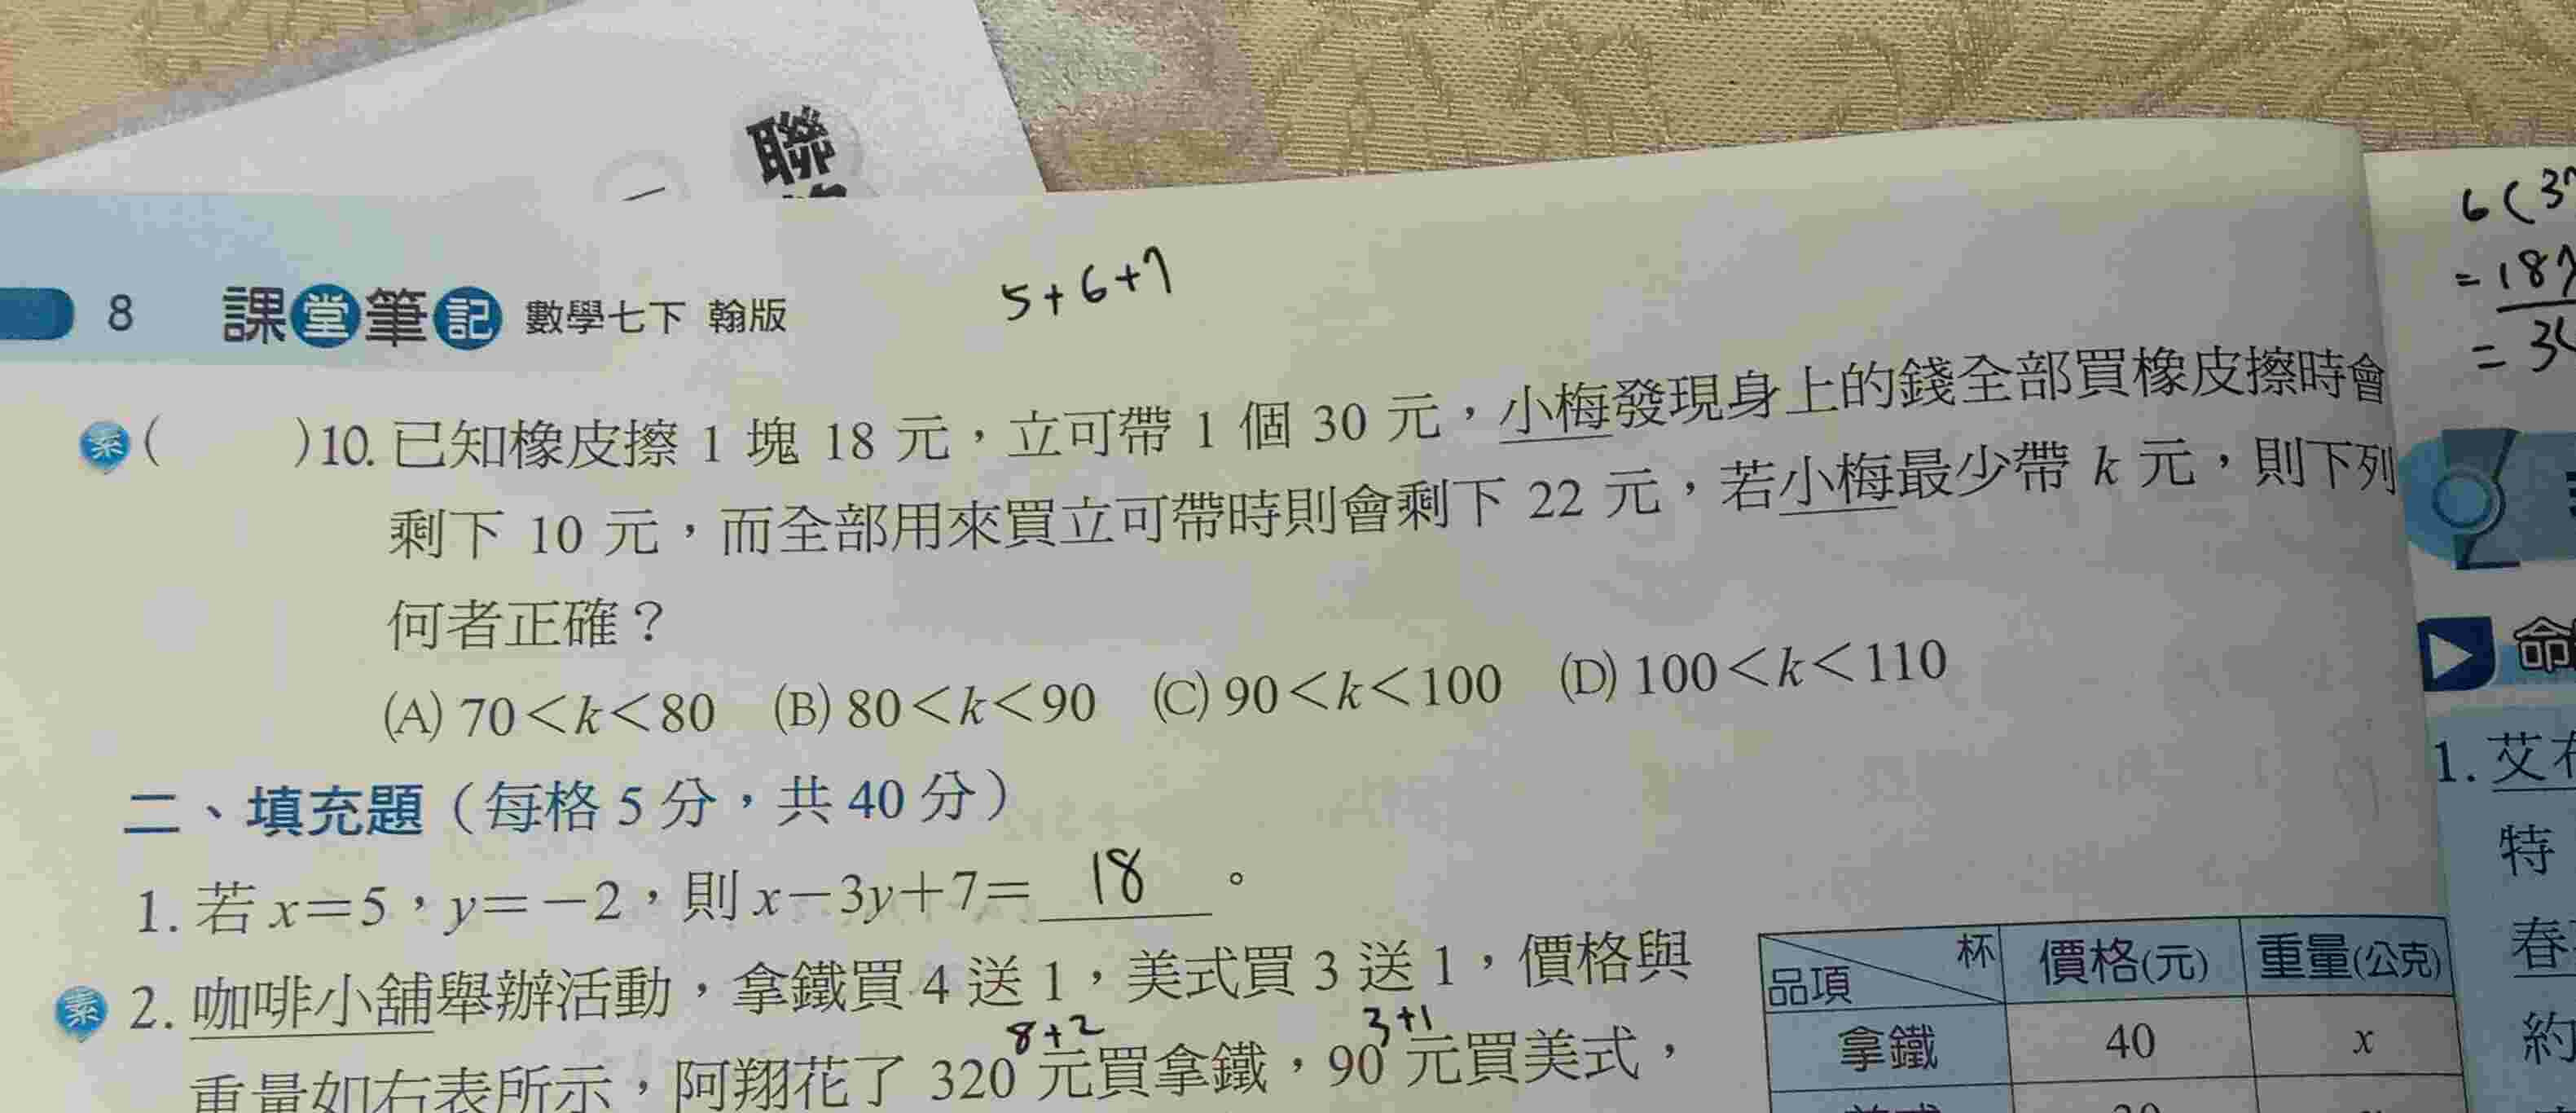 聯
8 課堂筆記 數學七下 翰版
5+6+7
素( )10. 已知橡皮擦 1 塊 18 元，立可帶 1 個 30 元，小梅發現身上的錢全部買橡皮擦時會
剩下 10 元，而全部用來買立可帶時則會剩下 22 元，若小梅最少帶 k 元，則下列
何者正確？
(A) 70＜k＜80 (B) 80＜k＜90 (C) 90＜k＜100 (D) 100＜k＜110
二、填充題（每格 5 分，共 40 分）
1. 若 x＝5，y＝－2，則 x－3y＋7＝ 18 。
素 2. 咖啡小舖舉辦活動，拿鐵買 4 送 1，美式買 3 送 1，價格與
8+2 3+1
重量如右表所示，阿翔花了 320 元買拿鐵，90 元買美式，
杯 品項 價格(元) 重量(公克)
拿鐵 40 x
6(3
=18
=3
命
1. 艾
特
春
約